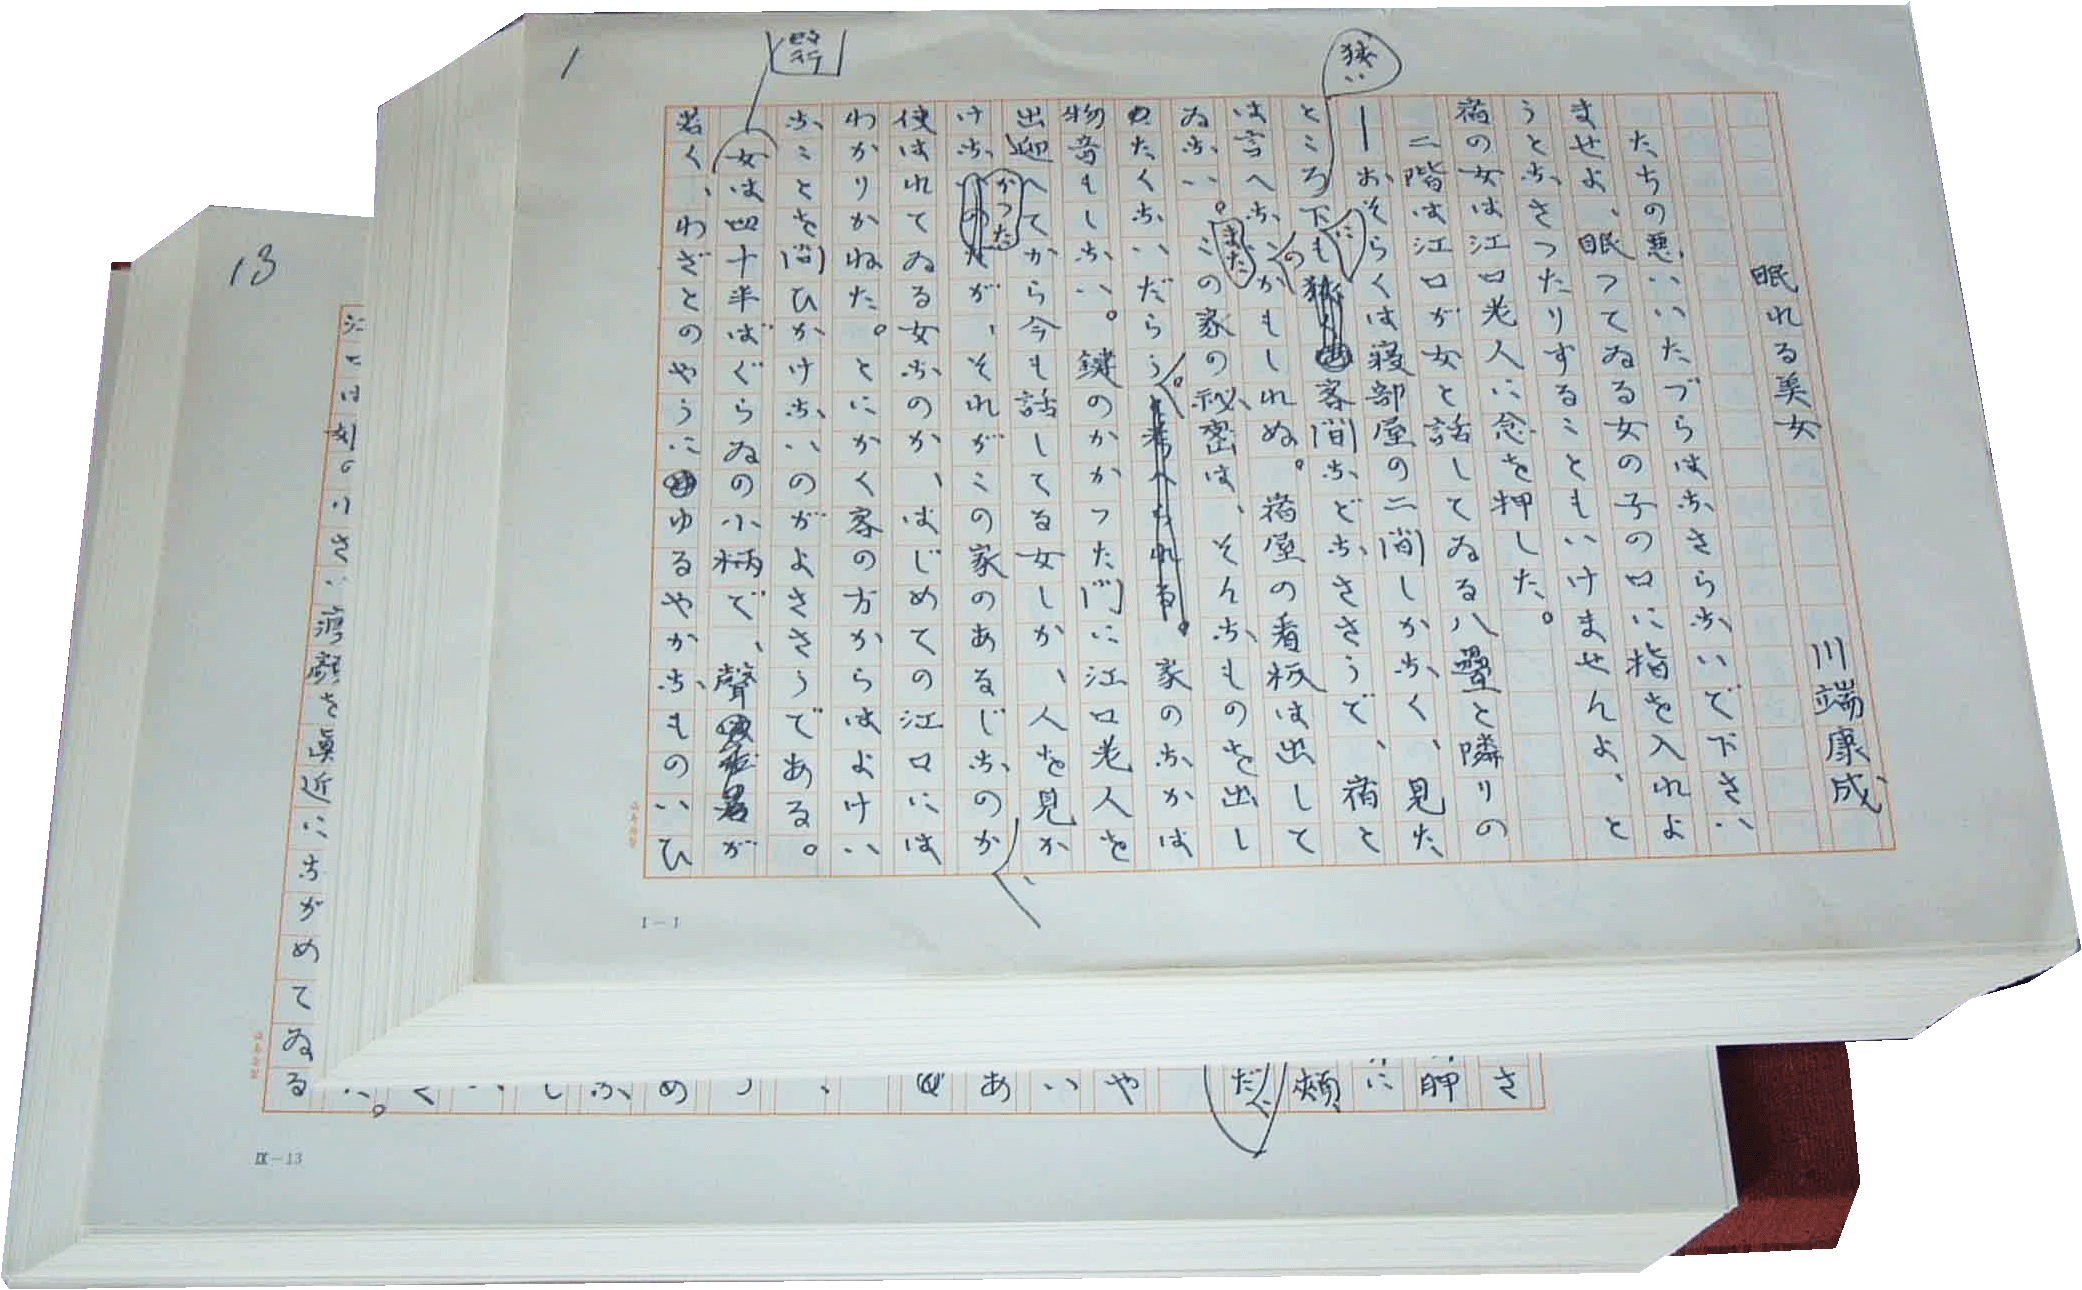 1
眠れる美女 川端康成
たちの悪いいたづらはなさらないで下さい
ませよ、眠つてゐる女の子の口に指を入れよ
うとなさつたりすることもいけませんよ、と
宿の女は江口老人に念を押した。
二階は江口が女と話してゐる八疊と隣りの
―おそらくは寝部屋の二間しかなく、見た
ところ狭い下に客間などなささうで、宿と
は言へないのかもしれぬ。宿屋の看板は出して
ゐない。またこの家の秘密は、そんなものを出し
たくないだらう。家のなかは
物音もしない。鍵のかかつた門に江口老人を
出迎へてから今も話してる女しか、人を見か
けなかつたが、それがこの家のあるじなのか、
使はれてゐる女なのか、はじめての江口には
わかりかねた。とにかく客の方からはよけい
なことを問ひかけないのがよささうである。
改行
女は四十半ばぐらゐの小柄で、聲が
若く、わざとのやうにゆるやかなものいひ
I-1
13
さい
を眞近にながめてゐる
IX-13